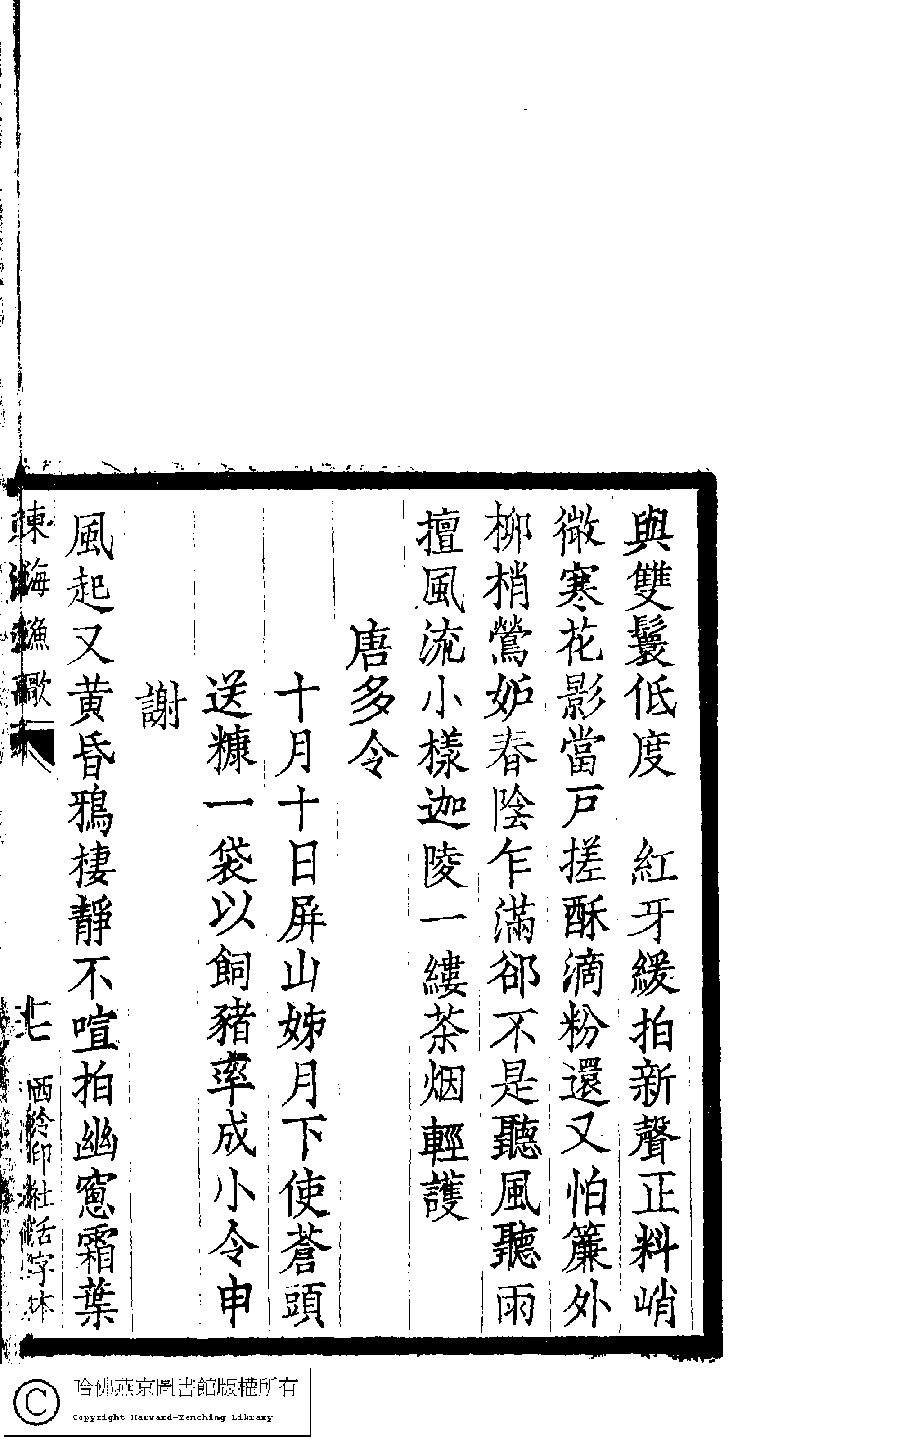 與雙鬟低度　紅牙緩拍新聲正料峭
微寒花影當戸搓酥滴粉還又怕簾外
柳梢鶯妬春陰乍滿郤不是聽風聽雨
擅風流小樣迦陵一縷茶烟輕護
唐多令
十月十日屏山姊月下使蒼頭
送糠一袋以飼豬率成小令申
謝
風起又黄昏鴉棲靜不喧拍幽窻霜葉
東海漁歌
七
西泠印社活字本
哈佛燕京圖書館版權所有
Copyright Harvard-Yenching Library